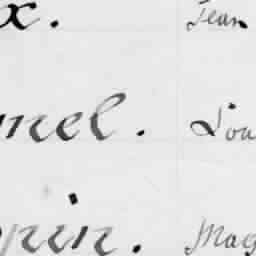 x. Jean
mel. Lou
pin. Mag